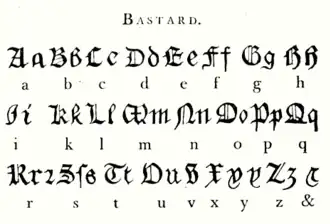 BASTARD.
Aa Bb Cc Dd Ee Ff Gg Hh
a b c d e f g h
Ii Kk Ll Mm Nn Oo Pp Qq
i k l m n o p q
Rrꝛ Sſs Tt Uu Xx Yy Zz
r s t u v x y z &